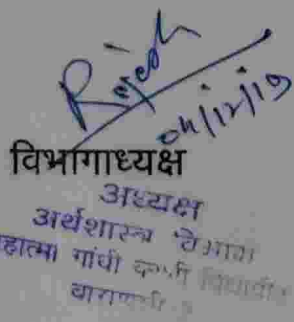 Rajesh
04/12/19
विभागाध्यक्ष
अध्यक्ष
अर्थशास्त्र विभाग
महात्मा गांधी काशी विद्यापीठ
वाराणसी